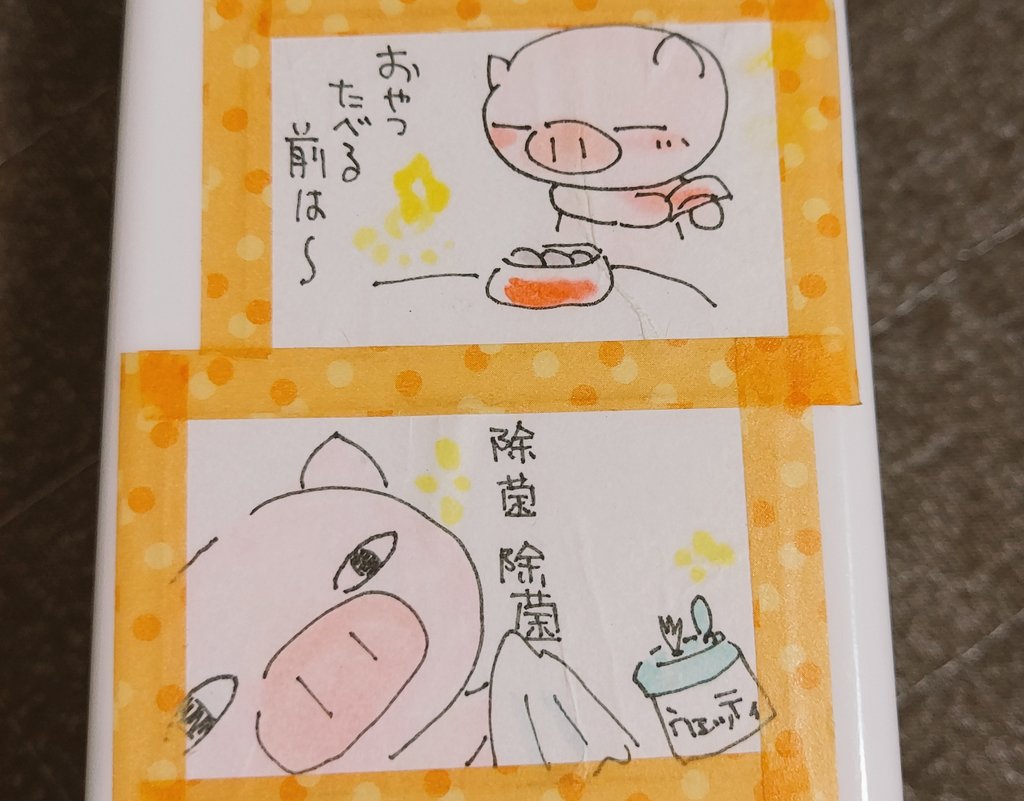 おやつ
たべる
前は〜
除菌
除菌
ウェッティ